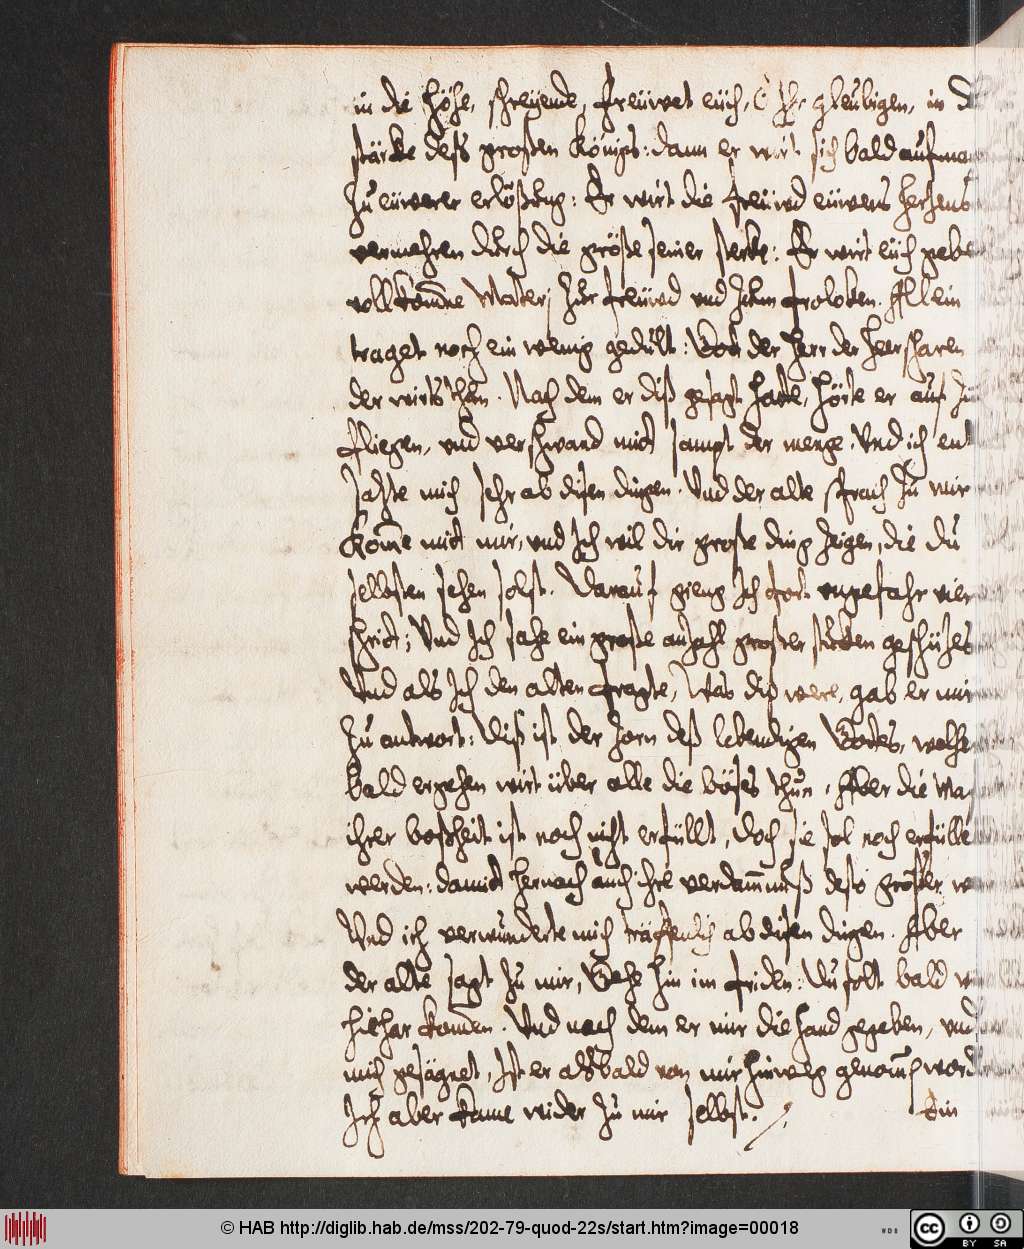 in die Höhe, schreyende, freüwet eüch, ô Ihr gleubigen, in d
stärke deß großen Königs: dann er wirt sich bald aufma
Zu eüwerer erlößung: Er wirt die freüwd eüwers Hertzens
vermehren durch die größe seiner sterke: Er wirt eüch geben
vollkom̄ne Materj zur freüwd vnd zum froloken. Allein
traget noch ein wenig gedult: Gott der Herr der Heerscharen
der wirts thun. Nach dem er diß gesagt hatte, hörte er auf zu
fliegen, vnd verschwand mitt sampt der menge. Vnd ich ent
satzte mich sehr ab disen dingen. Vnd der alte sprach zu mir
Kom̄e mitt mir, vnd Ich wil dir große ding zeigen, die du
selbsten sehen solst. Darauf gieng Ich fort vngefahr vier
schritt; Vnd Ich sahe ein große anzahl großer stuken geschützes
Vnd als Ich den alten fragte, Was diß were, gab er mir
zu antwort: Diß ist der Zorn deß lebendigen Gottes, welcher
bald ergehen wirt über alle die böses thun. Aber die Maß
ihrer boßheit ist noch nicht erfüllt, doch sie sol noch erfülle
werden: damitt hernach auch ihre verdam̄nuß desto größer
Vnd ich verwunderte mich träffenlich ab disen dingen. Aber
der alte sagt zu mir, Gehe hin im friden: Du solt bald
hiehar kom̄en. Vnd nach dem er mir die hand gegeben, vnd
mich gesägnet, Ist er alsbald von mir hinweg genom̄en word
Ich aber kame wider zu mir selbst.
Ein
© HAB http://diglib.hab.de/mss/202-79-quod-22s/start.htm?image=00018
WDB
cc BY SA